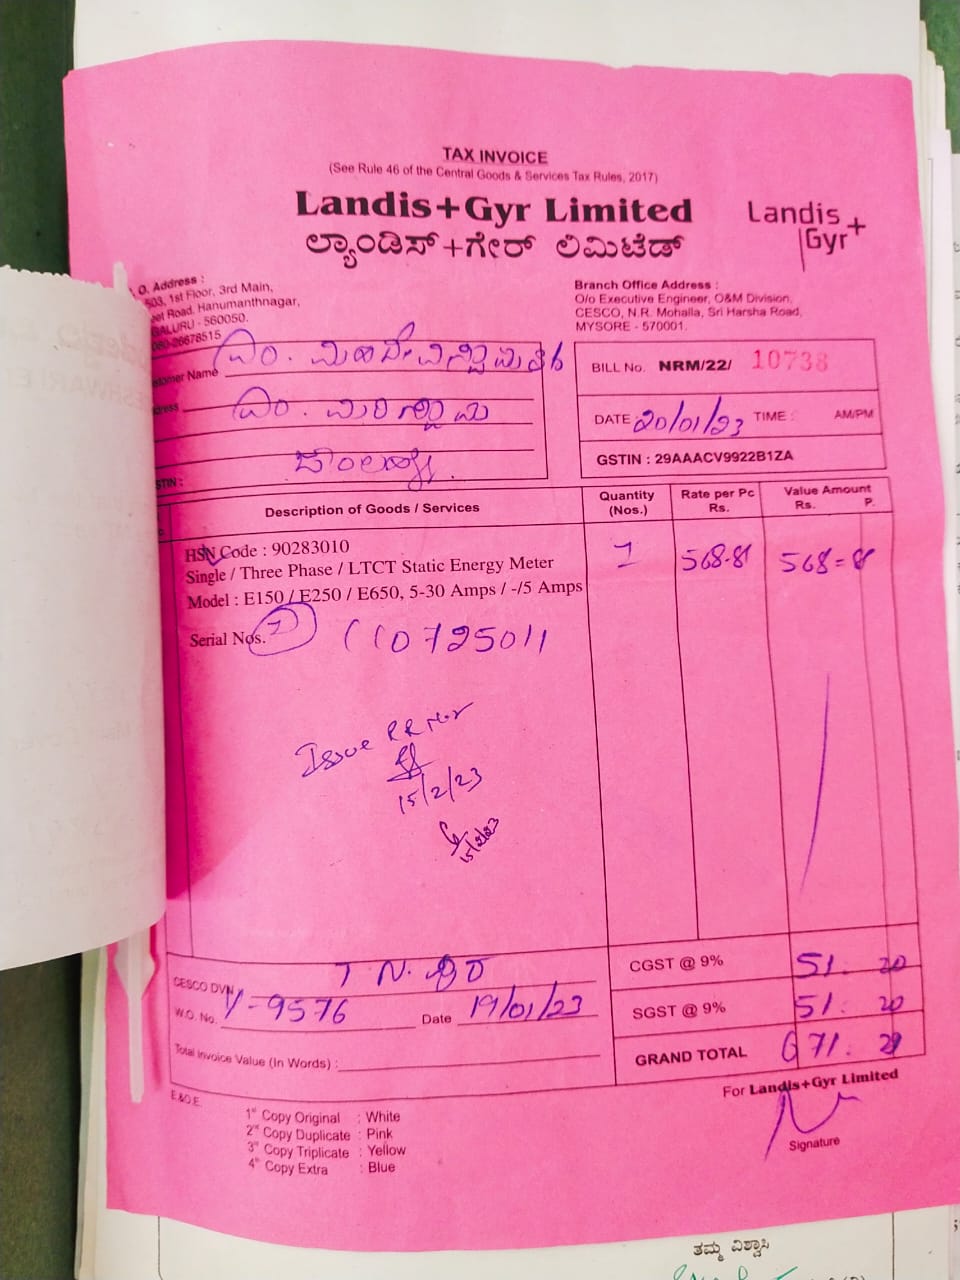 TAX INVOICE
(See Rule 46 of the Central Goods & Services Tax Rules, 2017)
Landis+Gyr Limited
ಲ್ಯಾಂಡಿಸ್+ಗೇರ್ ಲಿಮಿಟೆಡ್
Landis+
Gyr
O. Address :
503, 1st Floor, 3rd Main,
eet Road, Hanumanthnagar,
GALURU - 560050.
080-26678515
Branch Office Address :
O/o Executive Engineer, O&M Division,
CESCO, N.R. Mohalla, Sri Harsha Road,
MYSORE - 570001.
stomer Name
dress
STIN :
BILL No. NRM/22/ 10738
DATE : 20/01/23 TIME : AM/PM
GSTIN : 29AAACV9922B1ZA
Description of Goods / Services
Quantity (Nos.)
Rate per Pc Rs.
Value Amount Rs. P.
HSN Code : 90283010
Single / Three Phase / LTCT Static Energy Meter
Model : E150 / E250 / E650, 5-30 Amps / -/5 Amps
1 568-81 568=81
Serial Nos. 1 110725011
Issue RR No
15/2/23
15/2/23
CESCO DVN. T N.
W.O. No. Y-9576 Date 19/01/23
Total Invoice Value (In Words) :
CGST @ 9% 51. 20
SGST @ 9% 51. 20
GRAND TOTAL 671.
E.&.O.E.
For Landis+Gyr Limited
Signature
1st Copy Original : White
2nd Copy Duplicate : Pink
3rd Copy Triplicate : Yellow
4th Copy Extra : Blue
ತಮ್ಮ ವಿಶ್ವಾಸಿ